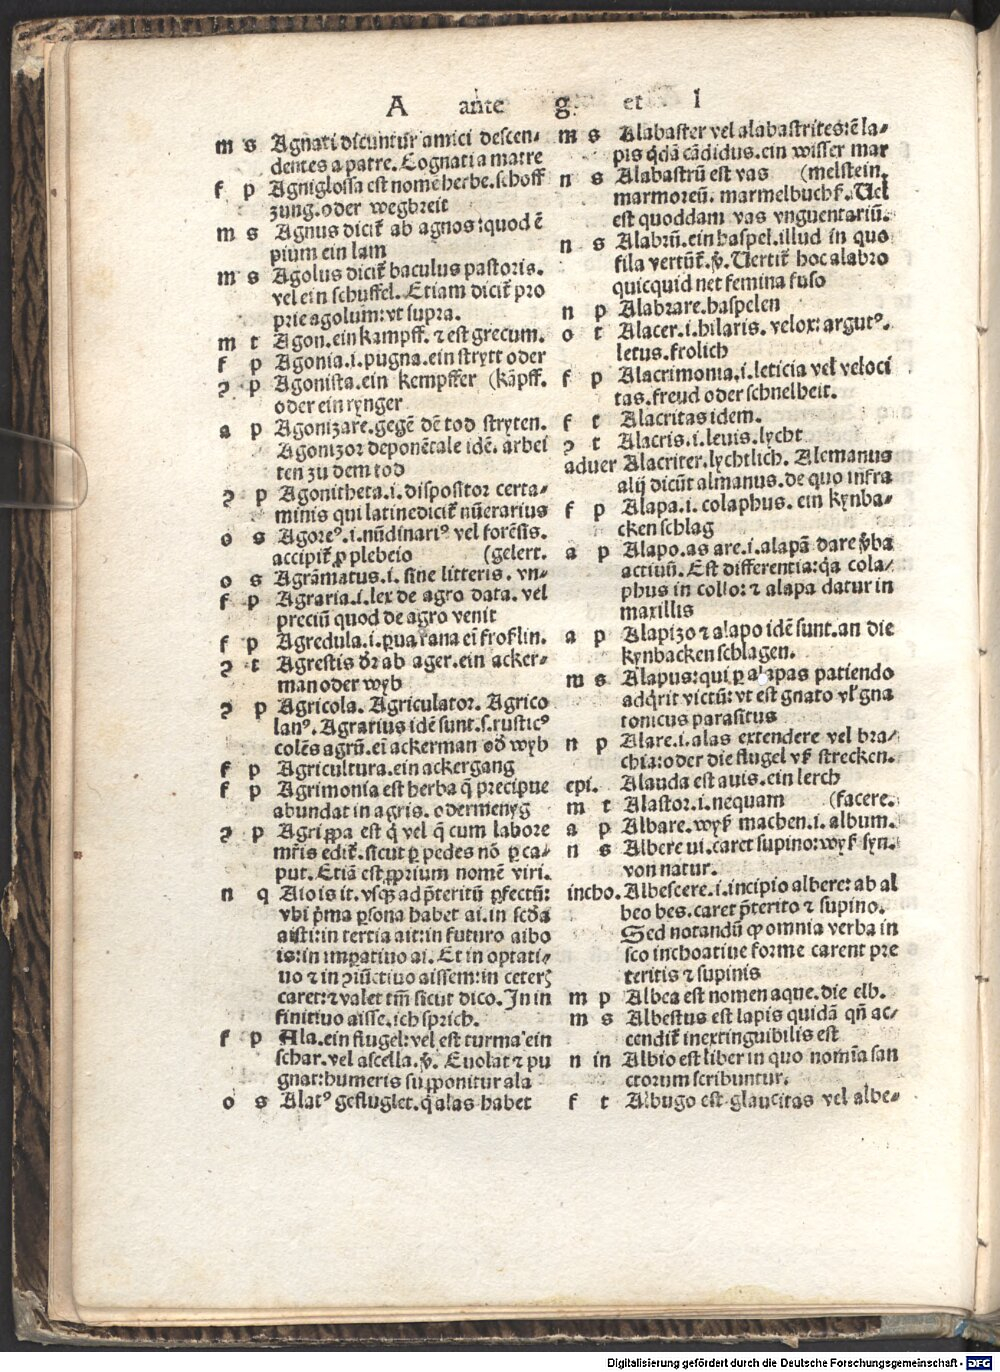 A ante g. et l
m s Agnati dicuntur amici descen-
dentes a patre. Cognati a matre
f p Agniglossa est nomē herbe. schoff
zung. oder wegbreit
m s Agnus dicit᷒ ab agnos: quod ē
pium ein lam
m s Agolus dicit᷒ baculus pastoris.
vel ein schuffel. Etiam dicit᷒ pro
prie agolum: vt supra.
m t Agon. ein kampff. ⁊ est grecum.
f p Agonia. i. pugna. ein strytt oder
ꝯ p Agonista. ein kempffer (kāpff.
oder ein rynger
a p Agonizare. gegē dē tod stryten.
Agonizor deponētale idē. arbei
ten zu dem tod
ꝯ p Agonitheta. i. dispositor certa-
minis qui latine dicit᷒ nūerarius
o s Agoreꝰ. i. nūdinariꝰ vel forēsis.
accipit᷒ ꝓ plebeio (gelert.
o s Agrāmatus. i. sine litteris. vn-
f p Agraria. i. lex de agro data. vel
preciū quod de agro venit
f p Agredula. i. parua rana eī froschlin.
ꝯ t Agrestis dr̄ ab ager. ein acker-
man oder wyb
ꝯ p Agricola. Agriculator. Agrico
lanꝰ. Agrarius idē sunt. s. rusticꝰ
colēs agrū. eī ackerman od̄ wyb
f p Agricultura. ein ackergang
f p Agrimonia est herba q̄ precipue
abundat in agris. odermenyg
ꝯ p Agrippa est q̇ vel q̄ cum labore
mr̄is edit᷒. sicut ꝑ pedes nō ꝑ ca-
put. Etiā est ꝓprium nomē viri.
n q Aio is it. vsqꝫ ad p̄teritū ꝑfectū:
vbi p̄ma ꝑsona habet ai. in scd̄a
aisti: in tertia ait: in futuro aibo
is: in imꝑatiuo ai. Et in optati-
uo ⁊ in ꝯiūctiuo aissem: in ceterꝭ
caret: ⁊ valet tm̄ sicut dico. In in
finitiuo aisse. ich sprich.
f p Ala. ein flugel: vel est turma ein
schar. vel ascella. v̊. Euolat ⁊ pu
gnat: humeris supponitur ala
o s Alatꝰ gefluglet. q̇ alas habet
m s Alabaster vel alabastrites: ē la-
pis q̇dā cādidus. ein wisser mar
n s Alabastrū est vas (melstein.
marmoreū. marmelbuchß. Uel
est quoddam vas vnguentariū.
n s Alabrū. ein haspel. illud in quo
fila vertūt᷒. v̊. Uertit᷒ hoc alabro
quicquid net femina fuso
n p Alabrare. haspelen
o t Alacer. i. hilaris. velox: argutꝰ.
letus. frolich
f p Alacrimonia. i. leticia vel veloci
tas. freud oder schnelheit.
f t Alacritas idem.
ꝯ t Alacris. i. leuis. lycht
aduer Alacriter. lychtlich. Alemanus
alij dicūt almanus. de quo infra
f p Alapa. i. colaphus. ein kynba-
cken schlag
a p Alapo. as are. i. alapā dare v̊ba
actiuū. Est differentia: q̇a cola-
phus in collo: ⁊ alapa datur in
maxillis
a p Alapizo ⁊ alapo idē sunt. an die
kynbacken schlagen.
m s Alapus: qui ꝑ alapas patiendo
adq̇rit victū: vt est gnato vl᷒ gna
tonicus parasitus
n p Alare. i. alas extendere vel bra-
chia: oder die flugel vß strecken.
epi. Alauda est auis. ein lerch
m t Alastor. i. nequam (facere.
a p Albare. wyß machen. i. album.
n s Albere ui. caret supino: wyß syn.
von natur.
incho. Albescere. i. incipio albere: ab al
beo bes. caret p̄terito ⁊ supino.
Sed notandū ꝙ omnia verba in
sco inchoatiue forme carent pre
teritis ⁊ supinis
m p Albea est nomen aque. die elb.
m s Albestus est lapis quidā qn̄ ac-
cendit᷒ inextinguibilis est
n in Albio est liber in quo nomīa san
ctorum scribuntur.
f t Albugo est glaucitas vel albe-
Digitalisierung gefördert durch die Deutsche Forschungsgemeinschaft - DFG